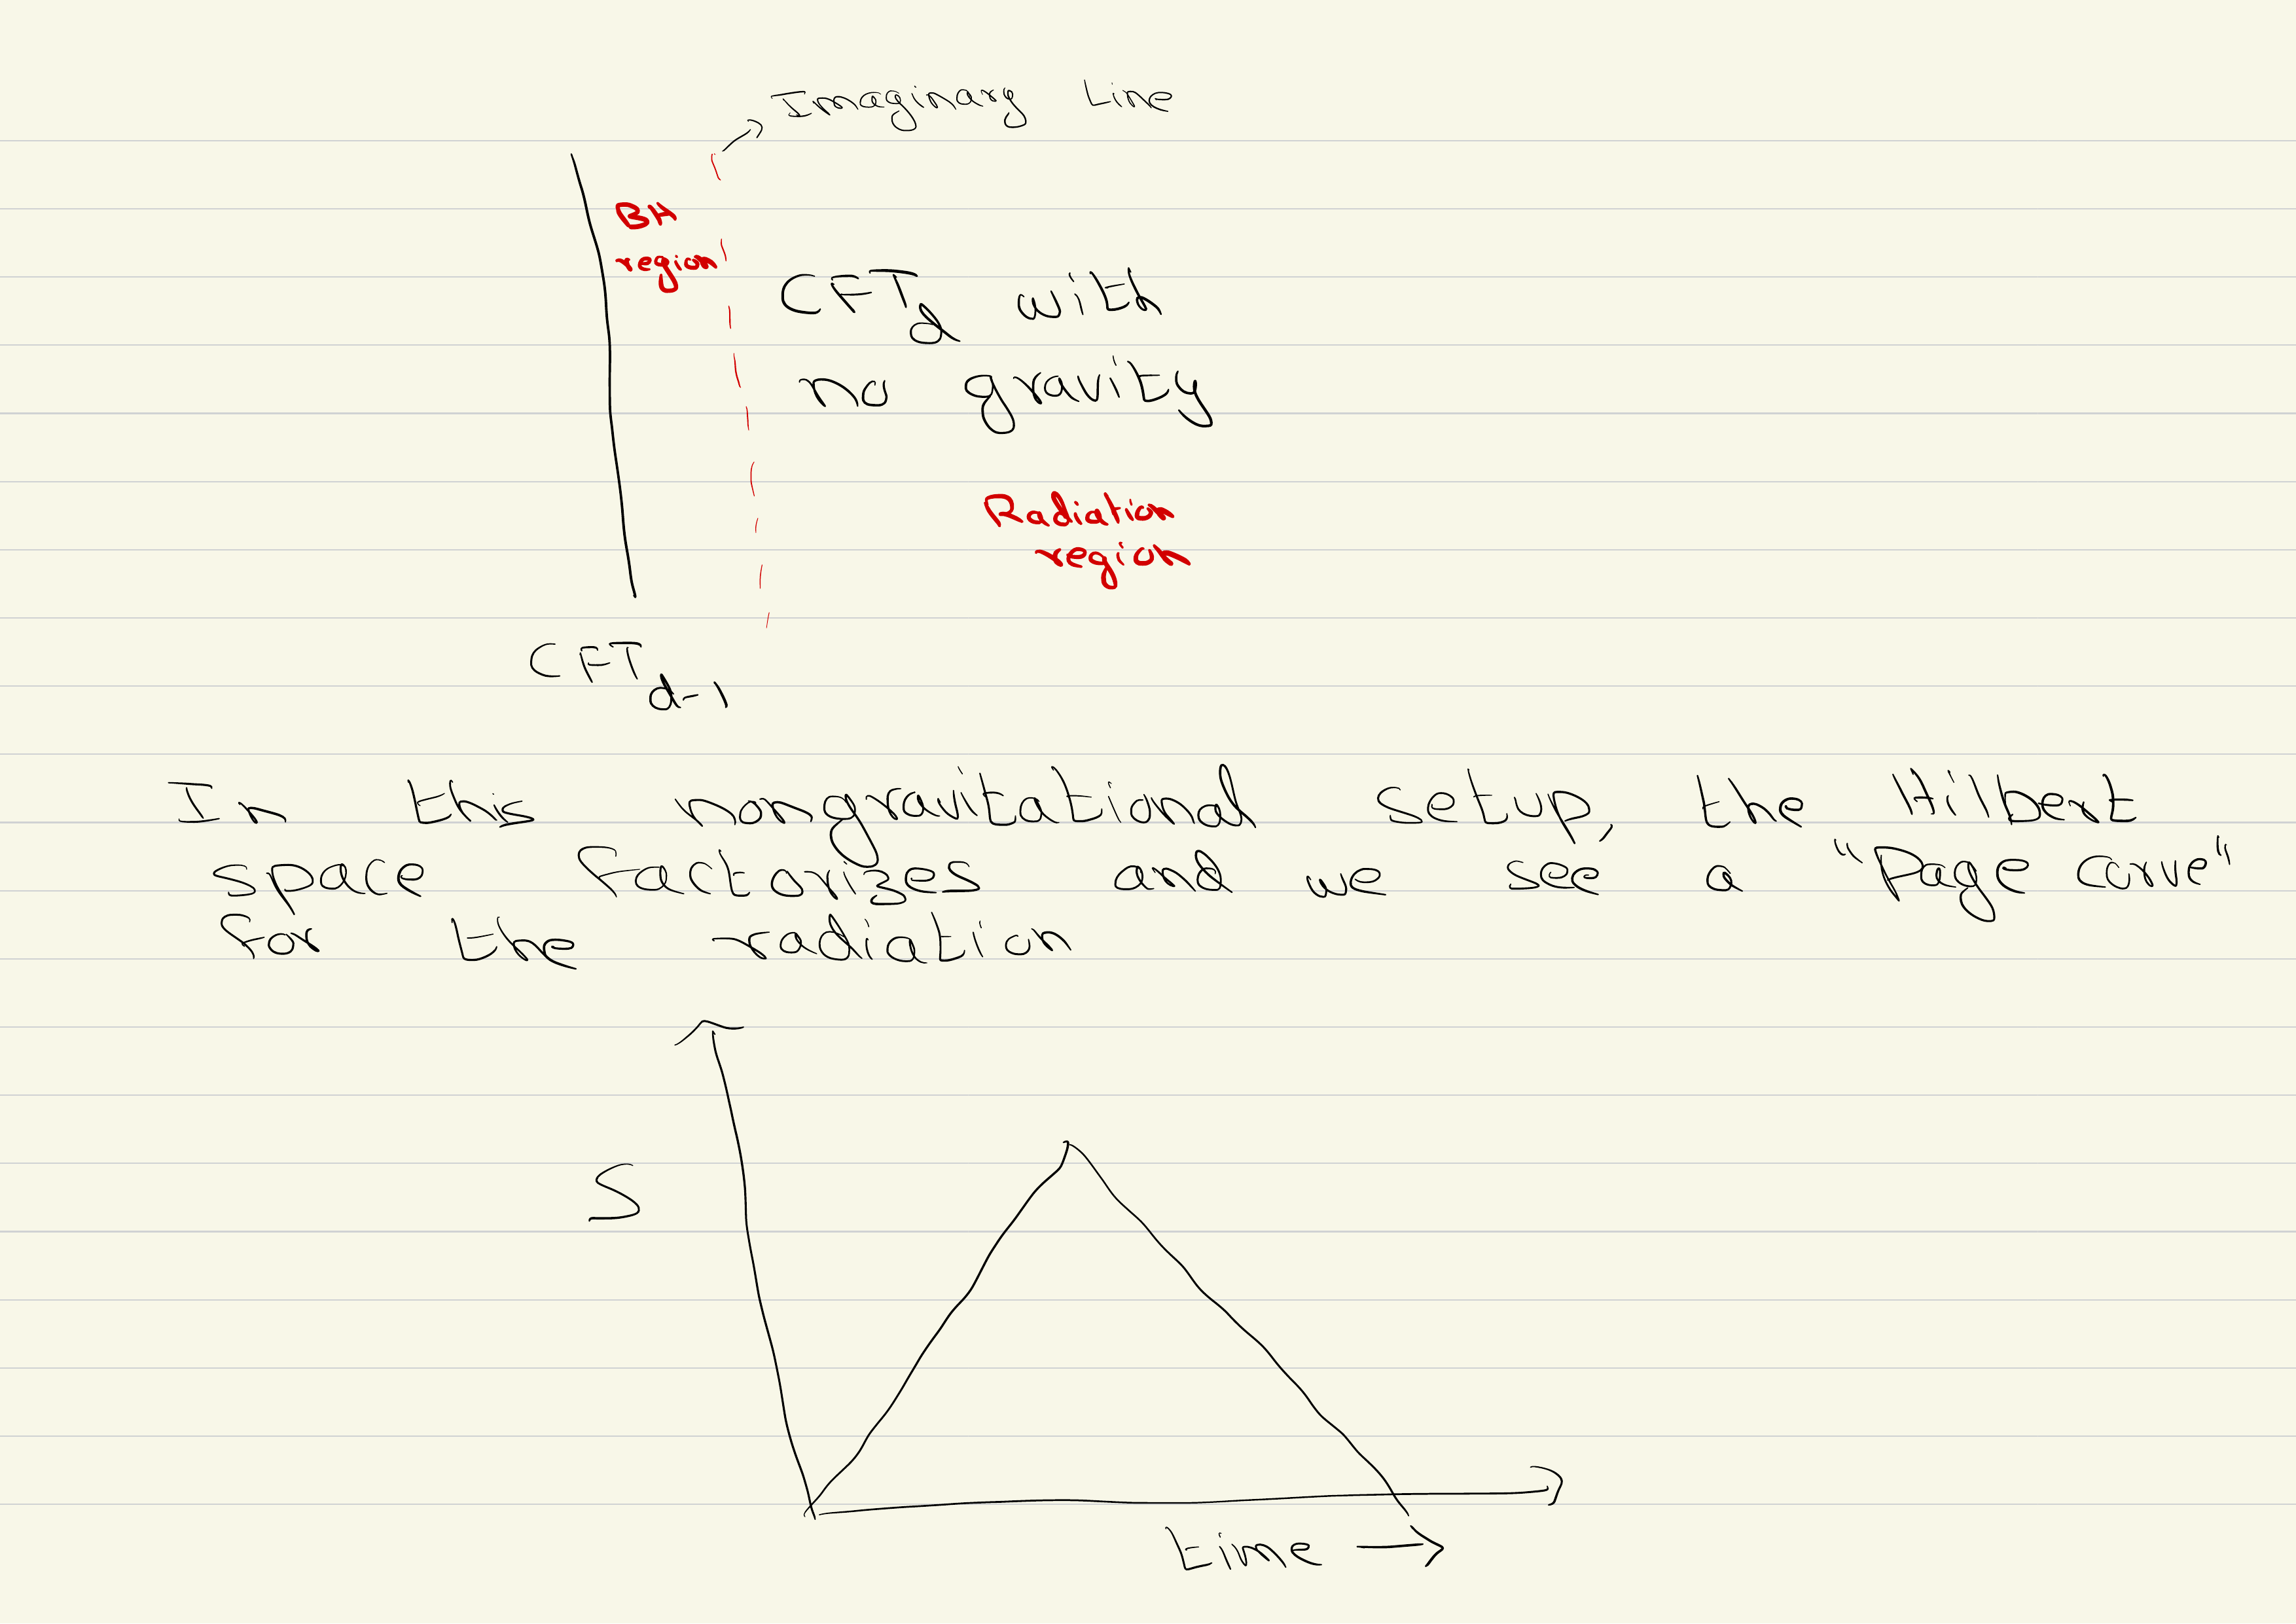 Imaginary Line
BH
region
CFT_d with
no gravity
Radiation
region
CFT_{d-1}
In this nongravitational setup, the Hilbert
space factorizes and we see a "Page curve"
for the radiation
S
time →